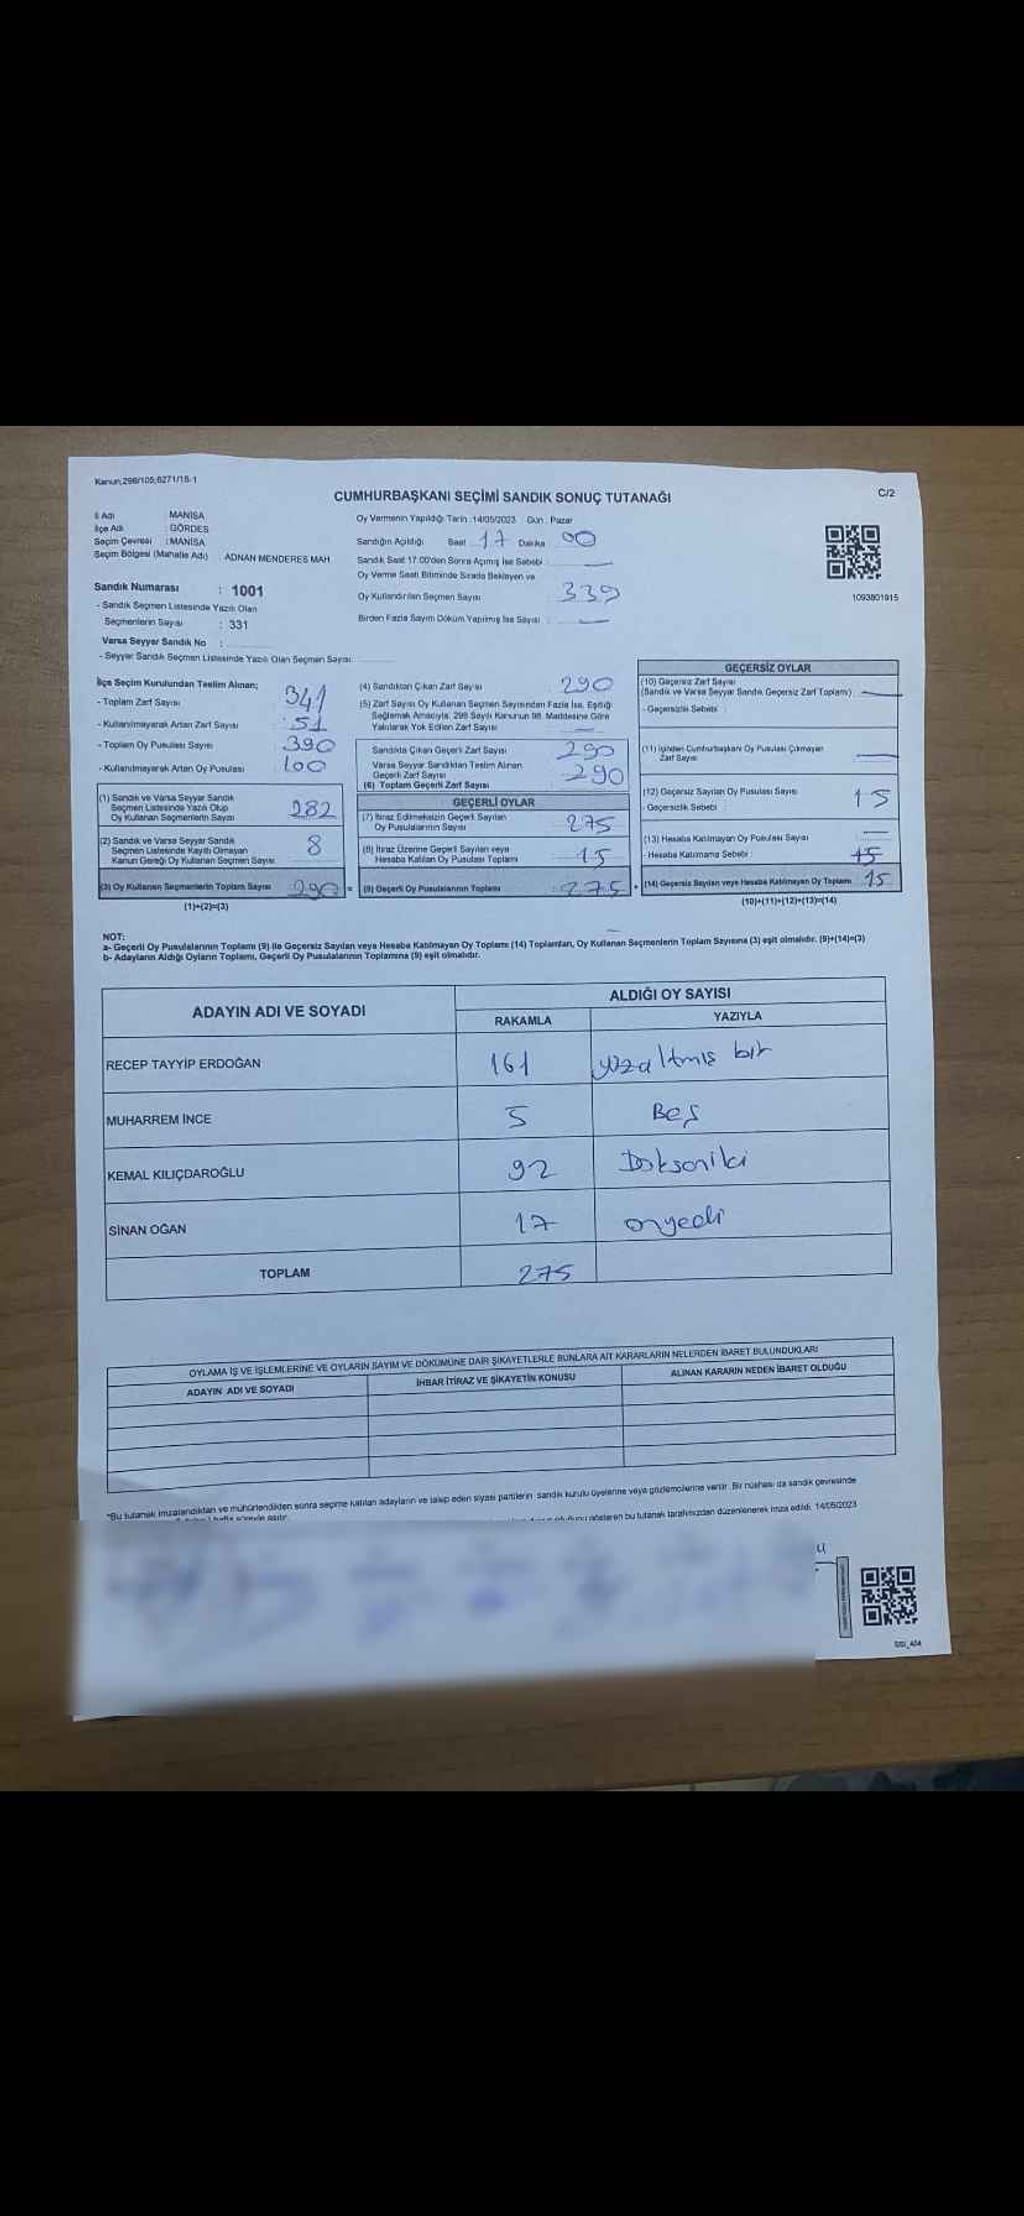 Kanun;298/105;6271/18-1
CUMHURBAŞKANI SEÇİMİ SANDIK SONUÇ TUTANAĞI
C/2
İl Adı MANİSA
İlçe Adı GÖRDES
Seçim Çevresi :MANİSA
Seçim Bölgesi (Mahalle Adı) ADNAN MENDERES MAH
Sandık Numarası : 1001
- Sandık Seçmen Listesinde Yazılı Olan
Seçmenlerin Sayısı : 331
Varsa Seyyar Sandık No :
- Seyyar Sandık Seçmen Listesinde Yazılı Olan Seçmen Sayısı
Oy Vermenin Yapıldığı Tarih :14/05/2023 Gün : Pazar
Sandığın Açıldığı Saat 17 Dakika 00
Sandık Saat 17:00'den Sonra Açılmış İse Sebebi
Oy Verme Saati Bitiminde Sırada Bekleyen ve
Oy Kullandırılan Seçmen Sayısı 339
Birden Fazla Sayım Döküm Yapılmış İse Sayısı :
1093801915
İlçe Seçim Kurulundan Teslim Alınan;
- Toplam Zarf Sayısı 341
- Kullanılmayarak Artan Zarf Sayısı 51
- Toplam Oy Pusulası Sayısı 390
- Kullanılmayarak Artan Oy Pusulası 100
(1) Sandık ve Varsa Seyyar Sandık
Seçmen Listesinde Yazılı Olup
Oy Kullanan Seçmenlerin Sayısı 282
(2) Sandık ve Varsa Seyyar Sandık
Seçmen Listesinde Kayıtlı Olmayan
Kanun Gereği Oy Kullanan Seçmen Sayısı 8
(3) Oy Kullanan Seçmenlerin Toplam Sayısı 290 =
(1)+(2)=(3)
(4) Sandıktan Çıkan Zarf Sayısı 290
(5) Zarf Sayısı Oy Kullanan Seçmen Sayısından Fazla İse, Eşitliği
Sağlamak Amacıyla, 298 Sayılı Kanunun 98. Maddesine Göre
Yakılarak Yok Edilen Zarf Sayısı
Sandıkta Çıkan Geçerli Zarf Sayısı 290
Varsa Seyyar Sandıktan Teslim Alınan
Geçerli Zarf Sayısı
(6) Toplam Geçerli Zarf Sayısı 290
GEÇERLİ OYLAR
(7) İtiraz Edilmeksizin Geçerli Sayılan
Oy Pusulalarının Sayısı 275
(8) İtiraz Üzerine Geçerli Sayılan veya
Hesaba Katılan Oy Pusulası Toplamı 15
(9) Geçerli Oy Pusulalarının Toplamı 275 +
GEÇERSİZ OYLAR
(10) Geçersiz Zarf Sayısı
(Sandık ve Varsa Seyyar Sandık Geçersiz Zarf Toplamı)
- Geçersizlik Sebebi :
(11) İçinden Cumhurbaşkanı Oy Pusulası Çıkmayan
Zarf Sayısı
(12) Geçersiz Sayılan Oy Pusulası Sayısı 15
- Geçersizlik Sebebi :
(13) Hesaba Katılmayan Oy Pusulası Sayısı
- Hesaba Katılmama Sebebi :
(14) Geçersiz Sayılan veya Hesaba Katılmayan Oy Toplamı 15
(10)+(11)+(12)+(13)=(14)
NOT:
a- Geçerli Oy Pusulalarının Toplamı (9) ile Geçersiz Sayılan veya Hesaba Katılmayan Oy Toplamı (14) Toplamları, Oy Kullanan Seçmenlerin Toplam Sayısına (3) eşit olmalıdır. (9)+(14)=(3)
b- Adayların Aldığı Oyların Toplamı, Geçerli Oy Pusulalarının Toplamına (9) eşit olmalıdır.
ADAYIN ADI VE SOYADI
ALDIĞI OY SAYISI
RAKAMLA YAZIYLA
RECEP TAYYİP ERDOĞAN 161 yüzaltmış bir
MUHARREM İNCE 5 Beş
KEMAL KILIÇDAROĞLU 92 Doksaniki
SİNAN OĞAN 17 onyedi
TOPLAM 275
OYLAMA İŞ VE İŞLEMLERİNE VE OYLARIN SAYIM VE DÖKÜMÜNE DAİR ŞİKAYETLERLE BUNLARA AİT KARARLARIN NELERDEN İBARET BULUNDUKLARI
ADAYIN ADI VE SOYADI İHBAR İTİRAZ VE ŞİKAYETİN KONUSU ALINAN KARARIN NEDEN İBARET OLDUĞU
*Bu tutanak imzalandıktan ve mühürlendikten sonra seçime katılan adayların ve takip eden siyasi partilerin sandık kurulu üyelerine veya gözlemcilerine verilir. Bir nüshası da sandık çevresinde
gösteren bu tutanak tarafımızdan düzenlenerek imza edildi. 14/05/2023